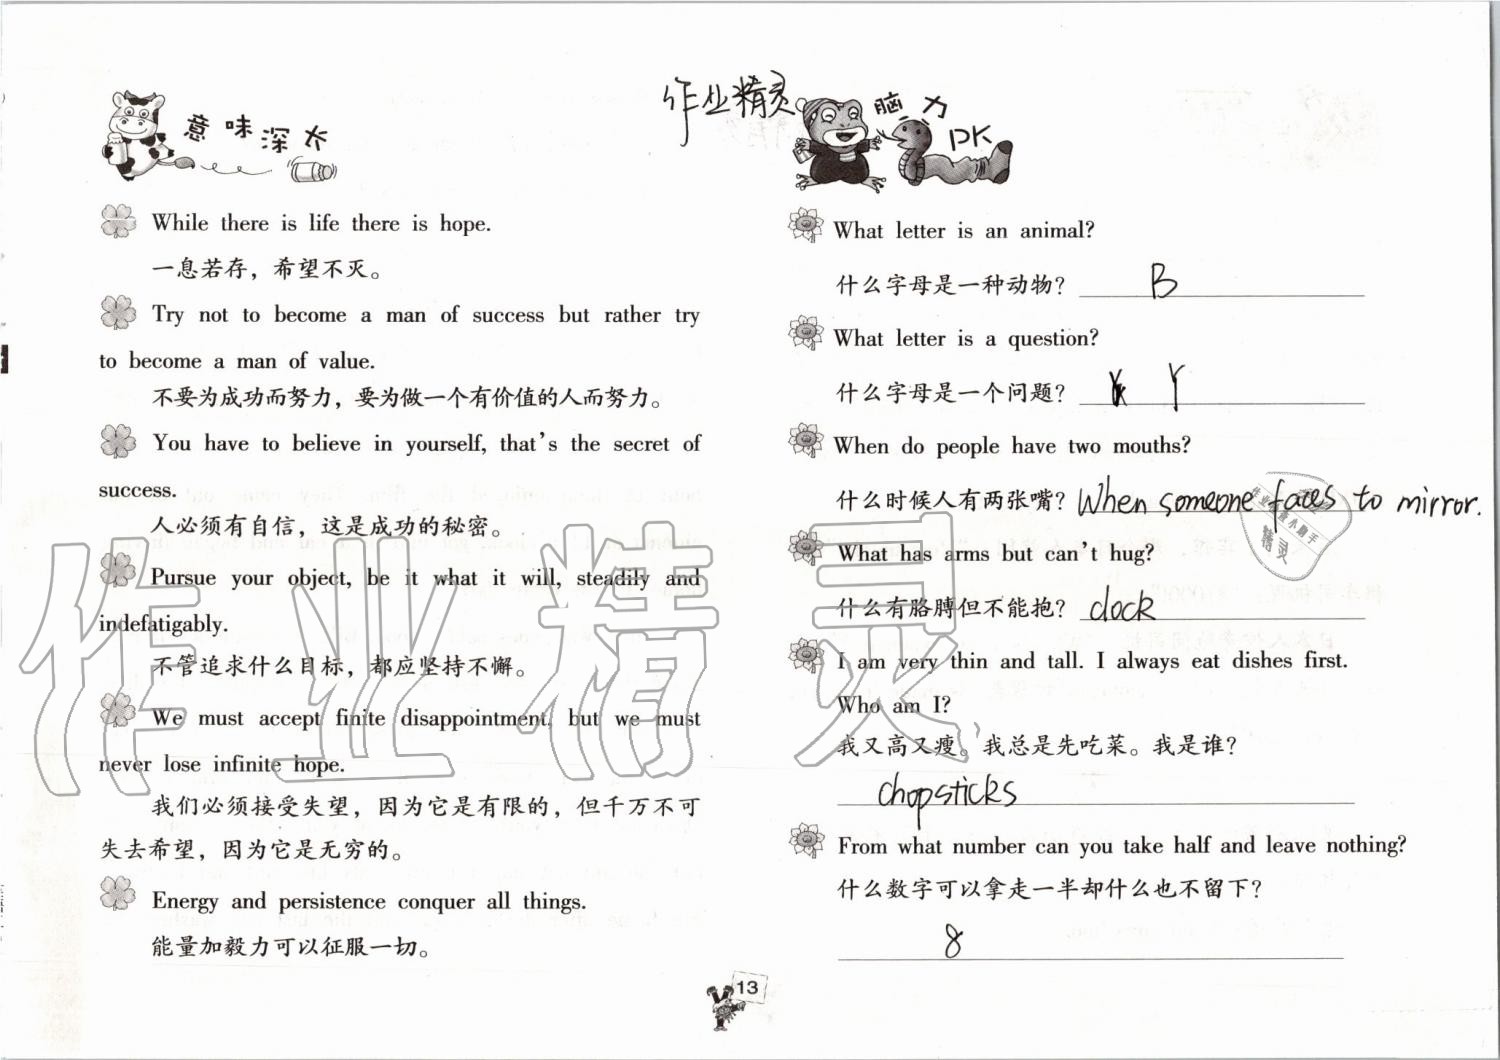 意味深太
While there is life there is hope.
一息若存，希望不灭。
Try not to become a man of success but rather try
to become a man of value.
不要为成功而努力，要为做一个有价值的人而努力。
You have to believe in yourself, that's the secret of
success.
人必须有自信，这是成功的秘密。
Pursue your object, be it what it will, steadily and
indefatigably.
不管追求什么目标，都应坚持不懈。
We must accept finite disappointment, but we must
never lose infinite hope.
我们必须接受失望，因为它是有限的，但千万不可
失去希望，因为它是无穷的。
Energy and persistence conquer all things.
能量加毅力可以征服一切。
作业精灵
脑力PK
What letter is an animal?
什么字母是一种动物？ B
What letter is a question?
什么字母是一个问题？ Y
When do people have two mouths?
什么时候人有两张嘴？ When someone faces to mirror.
What has arms but can't hug?
什么有胳膊但不能抱？ clock
I am very thin and tall. I always eat dishes first.
Who am I?
我又高又瘦。我总是先吃菜。我是谁？
chopsticks
From what number can you take half and leave nothing?
什么数字可以拿走一半却什么也不留下？
8
13
作业精灵